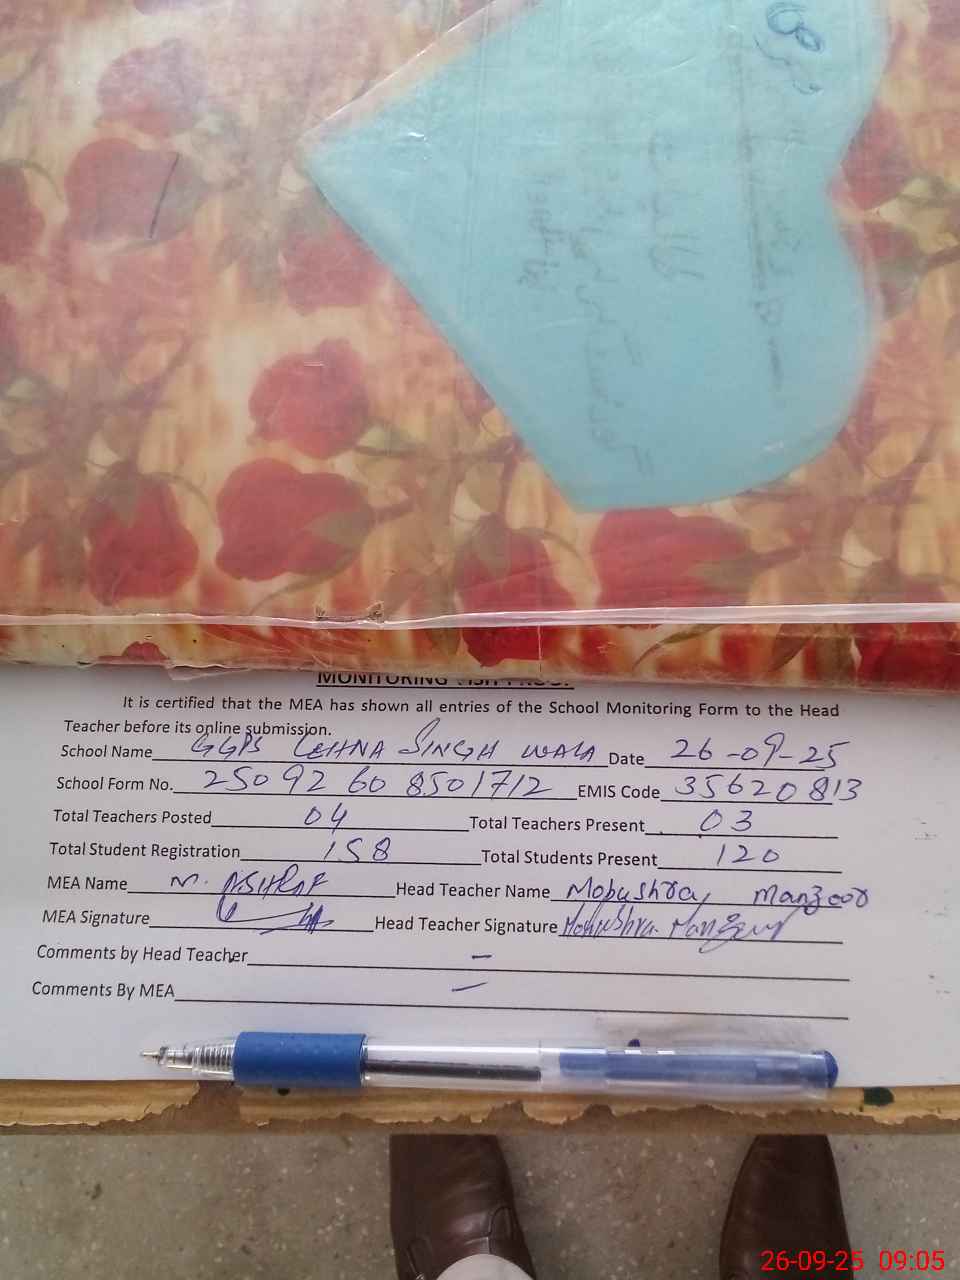 MONITORING VISIT PROOF
It is certified that the MEA has shown all entries of the School Monitoring Form to the Head
Teacher before its online submission.
School Name GGPS LEHNA SINGH WALA Date 26-09-25
School Form No. 250 92 60 8501712 EMIS Code 35620813
Total Teachers Posted 04 Total Teachers Present 03
Total Student Registration 158 Total Students Present 120
MEA Name M. ASHRAF Head Teacher Name Mobushra, Manzoor
MEA Signature Head Teacher Signature Mobushra Manzoor
Comments by Head Teacher –
Comments By MEA –
26-09-25 09:05